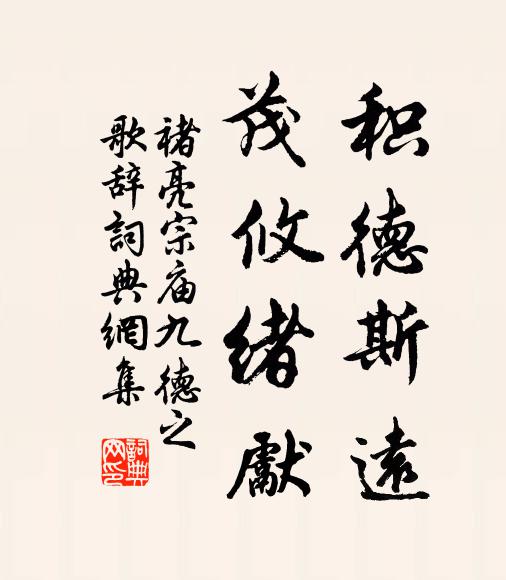 积德斯遠
茂攸绪獻
褚亮宗庙九德之
歌辞詞典網集
詞典
网印